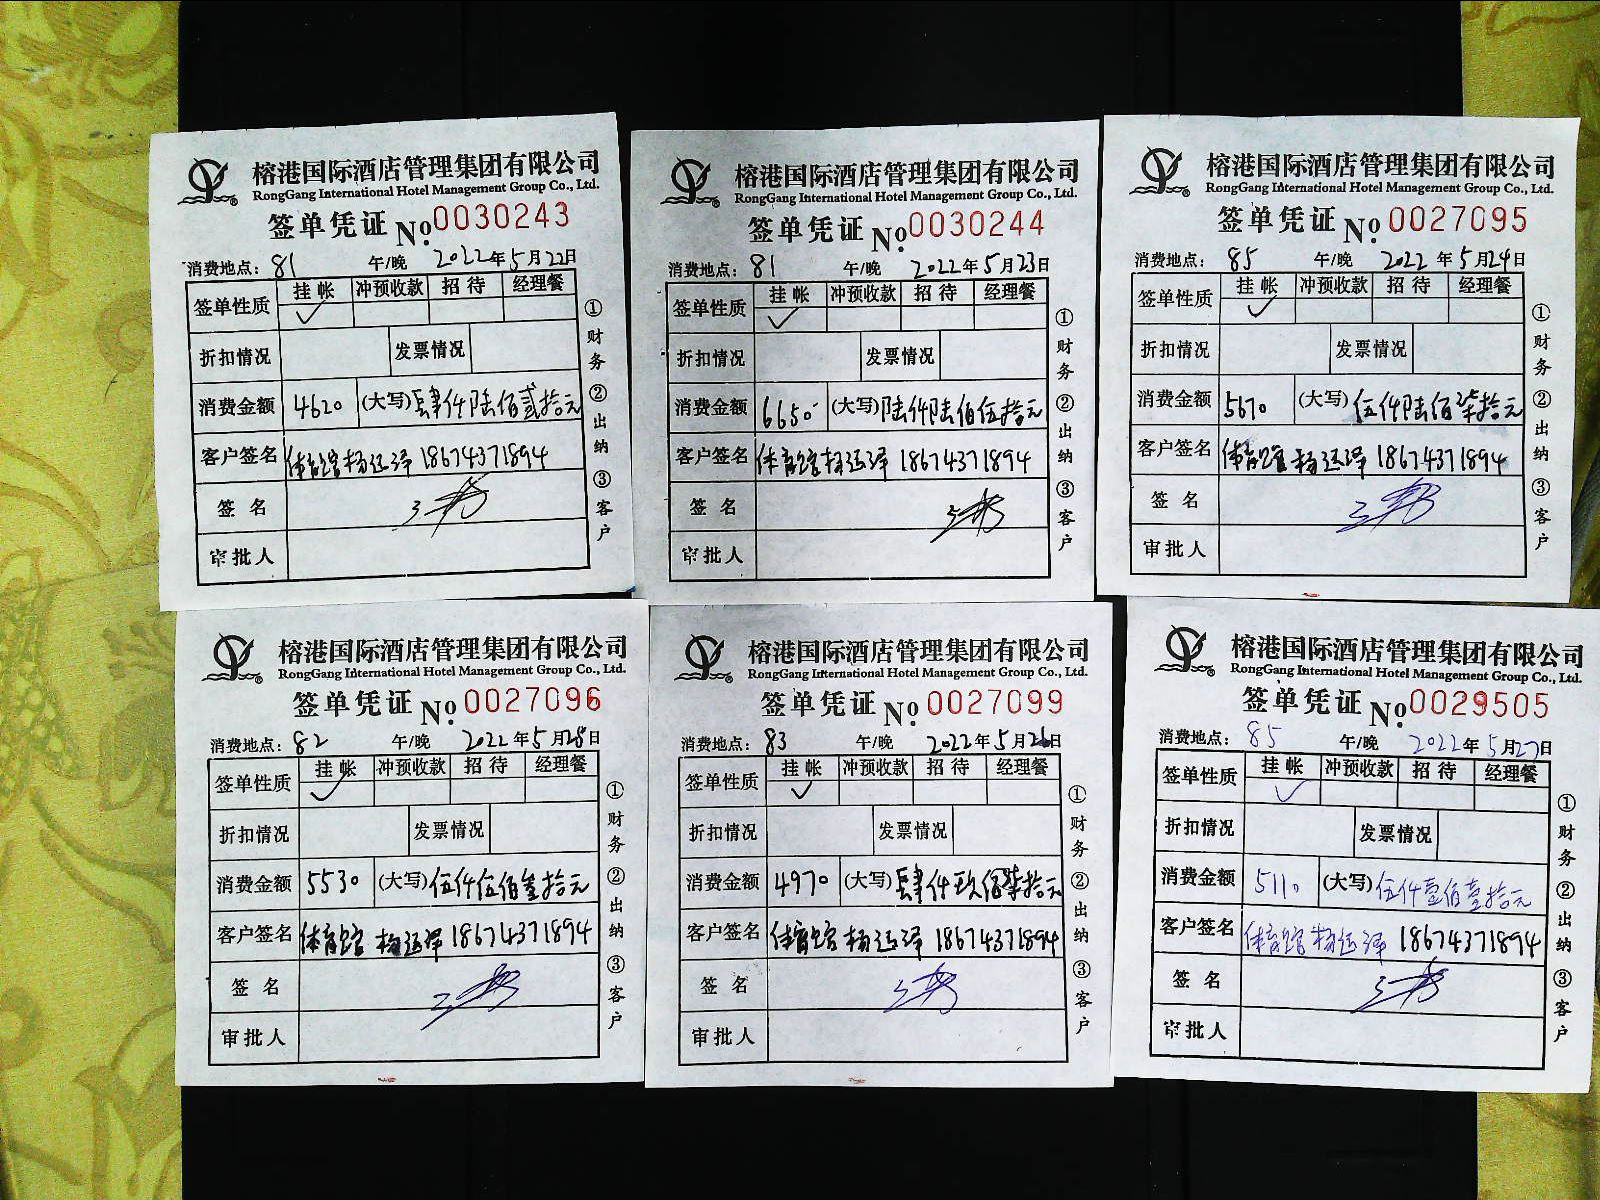 榕港国际酒店管理集团有限公司
RongGang International Hotel Management Group Co., Ltd.
签单凭证 No.0030243
消费地点：81 午/晚 2022年5月22日
签单性质 挂帐 冲预收款 招待 经理餐
✓
折扣情况 发票情况
消费金额 4620 (大写)肆仟陆佰贰拾元
客户签名 体育馆 杨远泽 18674371894
签名
审批人
①财务 ②出纳 ③客户
榕港国际酒店管理集团有限公司
RongGang International Hotel Management Group Co., Ltd.
签单凭证 No.0030244
消费地点：81 午/晚 2022年5月23日
签单性质 挂帐 冲预收款 招待 经理餐
✓
折扣情况 发票情况
消费金额 6650 (大写)陆仟陆佰伍拾元
客户签名 体育馆 杨远泽 18674371894
签名
审批人
①财务 ②出纳 ③客户
榕港国际酒店管理集团有限公司
RongGang International Hotel Management Group Co., Ltd.
签单凭证 No.0027095
消费地点：85 午/晚 2022年5月24日
签单性质 挂帐 冲预收款 招待 经理餐
✓
折扣情况 发票情况
消费金额 5670 (大写)伍仟陆佰柒拾元
客户签名 体育馆 杨远泽 18674371894
签名
审批人
①财务 ②出纳 ③客户
榕港国际酒店管理集团有限公司
RongGang International Hotel Management Group Co., Ltd.
签单凭证 No.0027096
消费地点：82 午/晚 2022年5月25日
签单性质 挂帐 冲预收款 招待 经理餐
✓
折扣情况 发票情况
消费金额 5530 (大写)伍仟伍佰叁拾元
客户签名 体育馆 杨远泽 18674371894
签名
审批人
①财务 ②出纳 ③客户
榕港国际酒店管理集团有限公司
RongGang International Hotel Management Group Co., Ltd.
签单凭证 No.0027099
消费地点：83 午/晚 2022年5月26日
签单性质 挂帐 冲预收款 招待 经理餐
✓
折扣情况 发票情况
消费金额 4970 (大写)肆仟玖佰柒拾元
客户签名 体育馆 杨远泽 18674371894
签名
审批人
①财务 ②出纳 ③客户
榕港国际酒店管理集团有限公司
RongGang International Hotel Management Group Co., Ltd.
签单凭证 No.0029505
消费地点：85 午/晚 2022年5月27日
签单性质 挂帐 冲预收款 招待 经理餐
✓
折扣情况 发票情况
消费金额 5110 (大写)伍仟壹佰壹拾元
客户签名 体育馆 杨远泽 18674371894
签名
审批人
①财务 ②出纳 ③客户